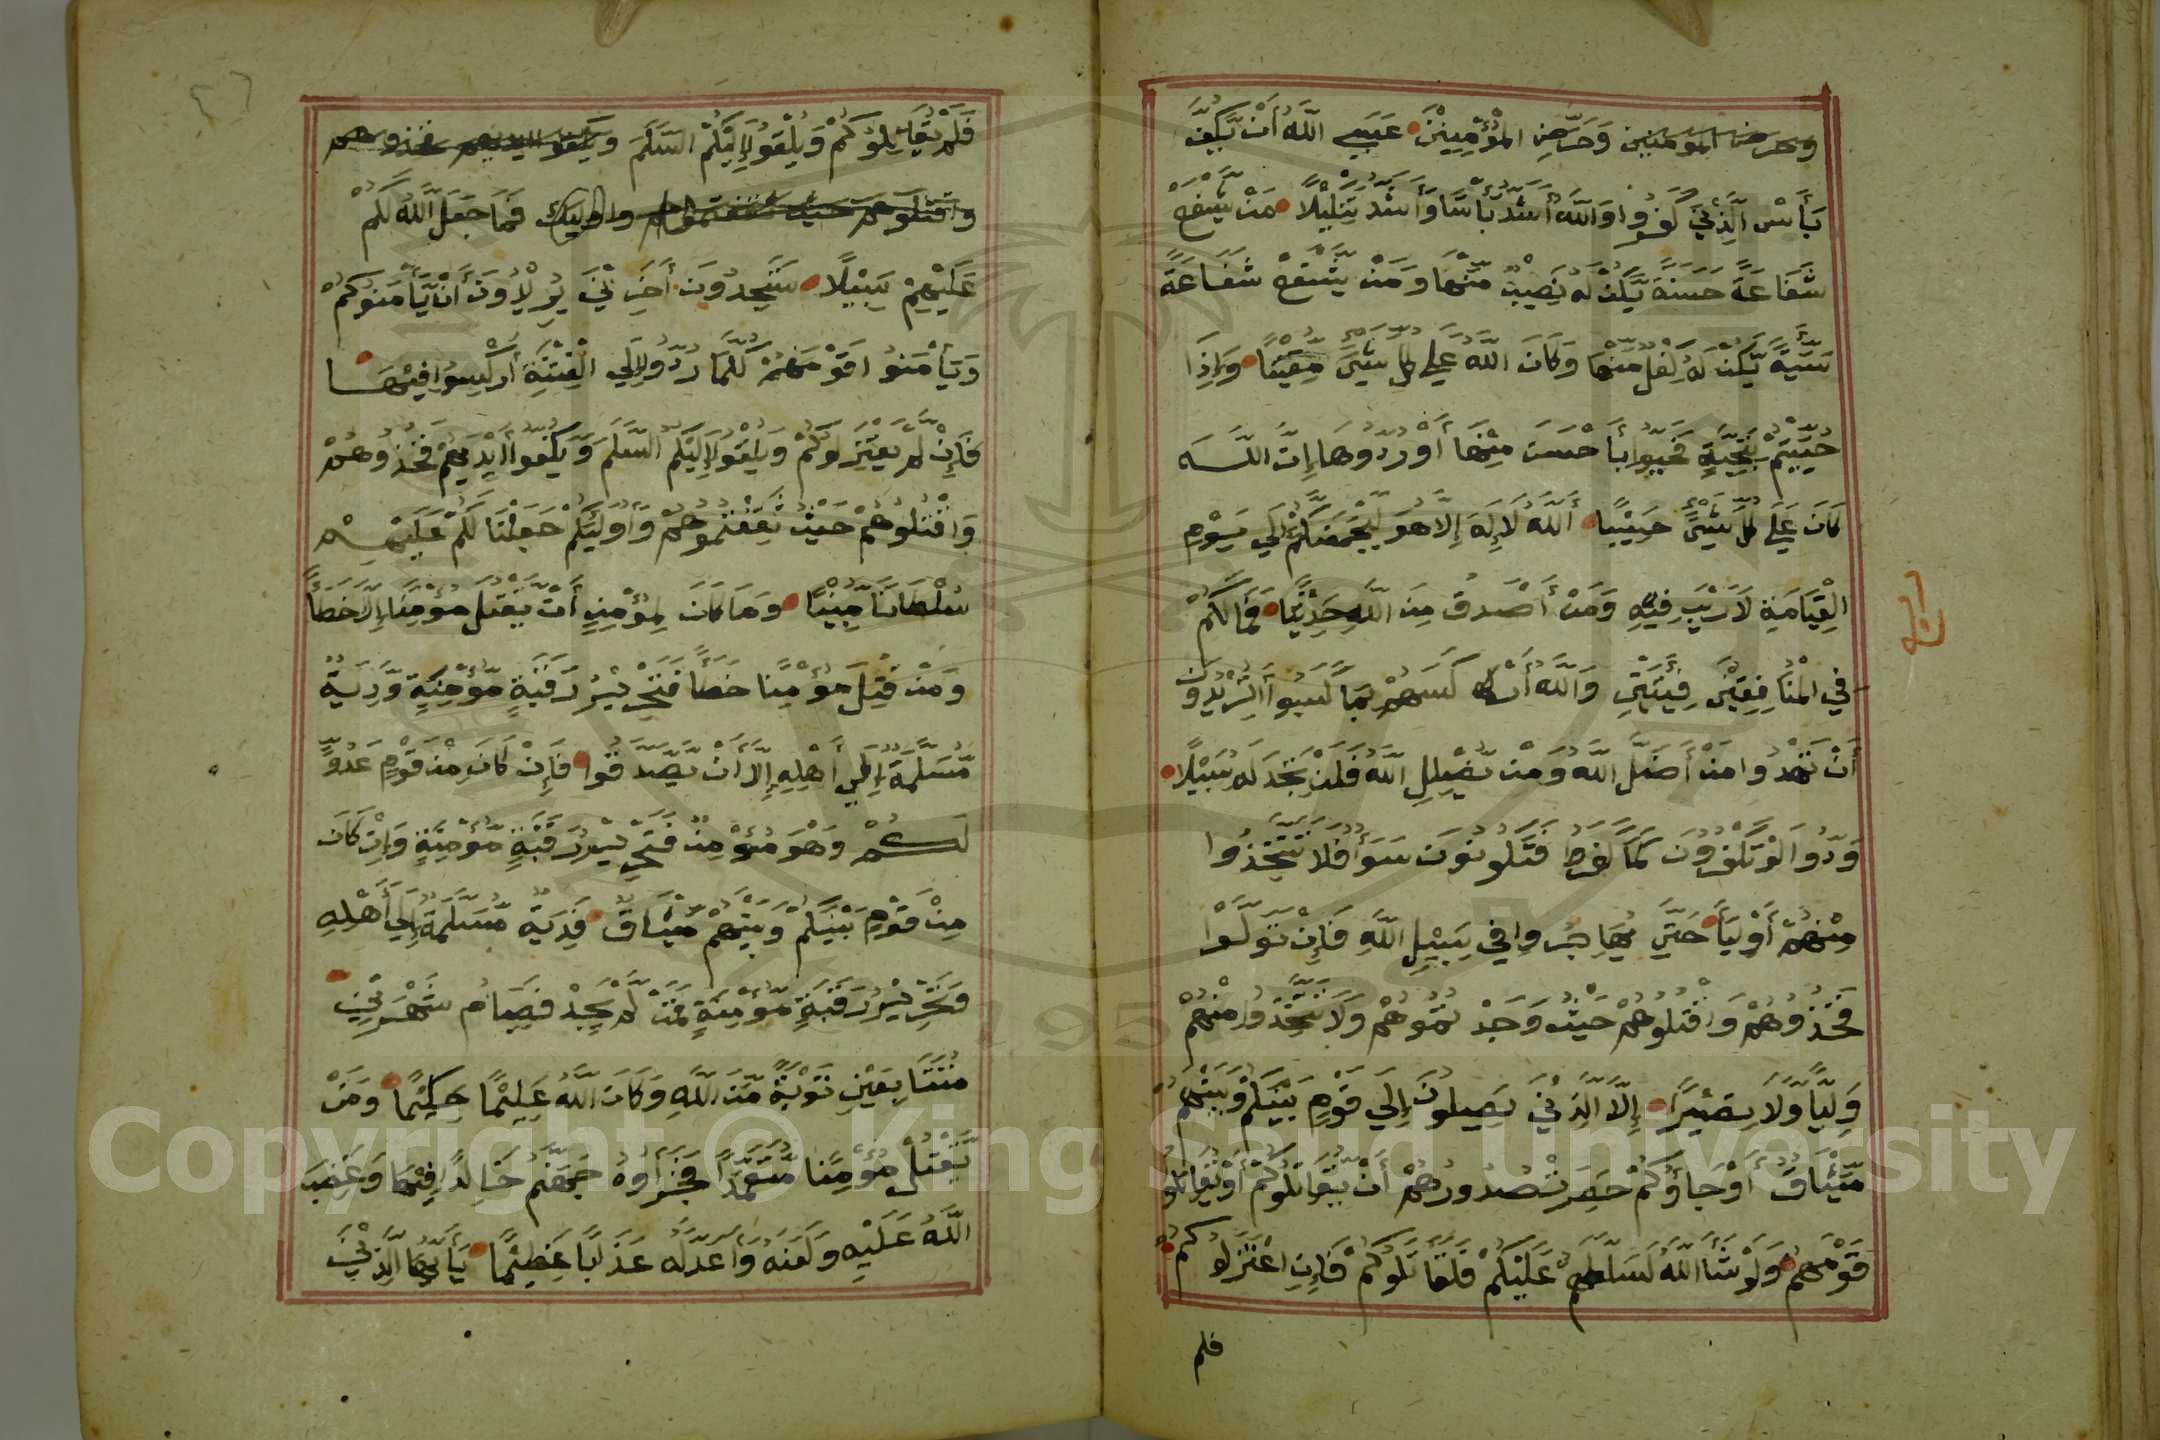 وحرض المؤمنين وَحَرِّضِ المُؤْمِنِيْنَ عَسَي اللَّهُ أَنْ يَّكُفَّ
بَأْسَ الَّذِيْنَ كَفَرُوْا وَاللَّهُ أَشَدُّ بَأْسًا وَأَشَدُّ تَنْكِيْلًا مَنْ يَّشْفَعْ
شَفَاعَةً حَسَنَةً يَّكُنْ لَهُ نَصِيْبٌ مِّنْهَا وَمَنْ يَّشْفَعْ شَفَاعَةً
سَيِّئَةً يَّكُنْ لَهُ كِفْلٌ مِّنْهَا وَكَانَ اللَّهُ عَلَي كُلِّ شَيْءٍ مُّقِيْتًا وَإِذَا
حُيِّيْتُمْ بِتَحِيَّةٍ فَحَيُّوا بِأَحْسَنَ مِنْهَا أَوْ رُدُّوْهَا إِنَّ اللَّهَ
كَانَ عَلَي كُلِّ شَيْءٍ حَسِيْبًا أَللَّهُ لَا إِلَهَ إِلَّا هُوَ لَيَجْمَعَنَّكُمْ إِلَي يَوْمِ
الْقِيَامَةِ لَا رَيْبَ فِيْهِ وَمَنْ أَصْدَقُ مِنَ اللَّهِ حَدِيْثًا فَمَا لَكُمْ
فِي الْمُنَافِقِيْنَ فِئَتَيْنِ وَاللَّهُ أَرْكَسَهُمْ بِمَا كَسَبُوا أَتُرِيْدُوْنَ
أَنْ تَهْدُوا مَنْ أَضَلَّ اللَّهُ وَمَنْ يُضْلِلِ اللَّهُ فَلَنْ تَجِدَ لَهُ سَبِيْلًا
وَدُّوا لَوْ تَكْفُرُوْنَ كَمَا كَفَرُوا فَتَكُوْنُوْنَ سَوَاءً فَلَا تَتَّخِذُوا
مِنْهُمْ أَوْلِيَاءَ حَتَّي يُهَاجِرُوا فِي سَبِيْلِ اللَّهِ فَإِنْ تَوَلَّوْا
فَخُذُوْهُمْ وَاقْتُلُوْهُمْ حَيْثُ وَجَدْتُمُوْهُمْ وَلَا تَتَّخِذُوا مِنْهُمْ
وَلِيًّا وَّلَا نَصِيْرًا إِلَّا الَّذِيْنَ يَصِلُوْنَ إِلَي قَوْمٍ بَيْنَكُمْ وَبَيْنَهُمْ
مِّيْثَاقٌ أَوْ جَاؤُكُمْ حَصِرَتْ صُدُوْرُهُمْ أَنْ يُّقَاتِلُوْكُمْ أَوْ يُقَاتِلُوا
قَوْمَهُمْ وَلَوْ شَاءَ اللَّهُ لَسَلَّطَهُمْ عَلَيْكُمْ فَلَقَاتَلُوْكُمْ فَإِنِ اعْتَزَلُوْكُمْ
فلم
فَلَمْ يُقَاتِلُوْكُمْ وَيُلْقَوْا إِلَيْكُمُ السَّلَمَ ويكفوا ايديهم فخذوهم
واقتلوهم حيث ثقفتموهم واوليك فَمَا جَعَلَ اللَّهُ لَكُمْ
عَلَيْهِمْ سَبِيْلًا سَتَجِدُوْنَ أَخَرِيْنَ يُرِيْدُوْنَ أَنْ يَّأْمَنُوْكُمْ
وَيَأْمَنُوْا قَوْمَهُمْ كُلَّمَا رُدُّوا إِلَي الْفِتْنَةِ أُرْكِسُوا فِيْهَا
فَإِنْ لَّمْ يَعْتَزِلُوْكُمْ وَيُلْقُوا إِلَيْكُمُ السَّلَمَ وَيَكُفُّوا أَيْدِيَهُمْ فَخُذُوْهُمْ
وَاقْتُلُوْهُمْ حَيْثُ ثَقِفْتُمُوْهُمْ وَأُوْلَئِكُمْ جَعَلْنَا لَكُمْ عَلَيْهِمْ
سُلْطَانًا مُّبِيْنًا وَمَا كَانَ لِمُؤْمِنٍ أَنْ يَّقْتُلَ مُؤْمِنًا إِلَّا خَطَأً
وَمَنْ قَتَلَ مُؤْمِنًا خَطَأً فَتَحْرِيْرُ رَقَبَةٍ مُّؤْمِنَةٍ وَّدِيَةٌ
مُّسَلَّمَةٌ إِلَي أَهْلِهِ إِلَّا أَنْ يَّصَّدَّقُوا فَإِنْ كَانَ مِنْ قَوْمٍ عَدُوٍّ
لَكُمْ وَهْوَ مُؤْمِنٌ فَتَحْرِيْرُ رَقَبَةٍ مُّؤْمِنَةٍ وَإِنْ كَانَ
مِنْ قَوْمٍ بَيْنَكُمْ وَبَيْنَهُمْ مِّيْثَاقٌ فَدِيَةٌ مُّسَلَّمَةٌ إِلَي أَهْلِهِ
وَتَحْرِيْرُ رَقَبَةٍ مُّؤْمِنَةٍ فَمَنْ لَّمْ يَجِدْ فَصِيَامُ شَهْرَيْنِ
مُتَتَابِعَيْنِ تَوْبَةً مِّنَ اللَّهِ وَكَانَ اللَّهُ عَلِيْمًا حَكِيْمًا وَمَنْ
يَّقْتُلْ مُؤْمِنًا مُّتَعَمِّدًا فَجَزَاؤُهُ جَهَنَّمُ خَالِدًا فِيْهَا وَغَضِبَ
اللَّهُ عَلَيْهِ وَلَعَنَهُ وَأَعَدَّ لَهُ عَذَابًا عَظِيْمًا يَأَيُّهَا الَّذِيْنَ
Copyright © King Saud University